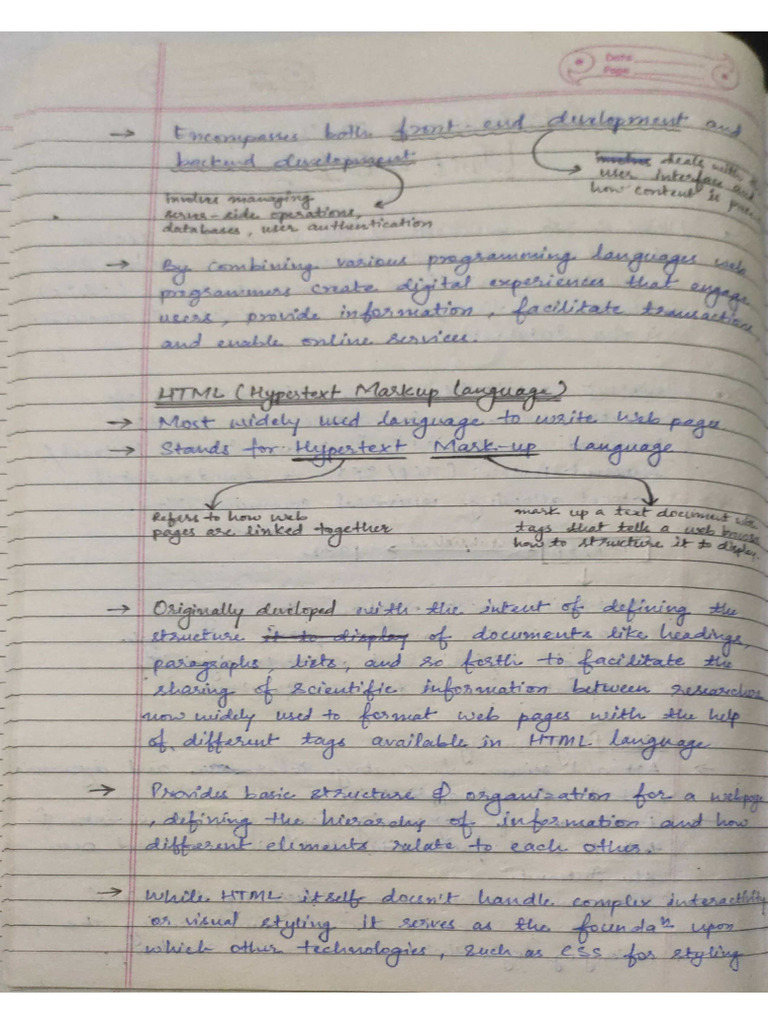 Date
Page
→ Encompasses both front end development and
backend development.
deals with
user interface and
how content is
Involve managing
server-side operations,
databases, user authentication
→ By combining various programming languages web
programmers create digital experiences that engage
users, provide information, facilitate transactions
and enable online services.
HTML (Hypertext Markup language)
→ Most widely used language to write Web pages
→ Stands for Hypertext Mark-up language
Refers to how web
pages are linked together
mark up a text document with
tags that tells a web browser
how to structure it to display.
→ Originally developed with the intent of defining the
structure it to display of documents like headings,
paragraphs, lists, and so forth to facilitate the
sharing of scientific information between researchers
now widely used to format web pages with the help
of different tags available in HTML language
→ Provides basic structure & organization for a webpage
, defining the hierarchy of information and how
different elements relate to each other.
→ While HTML itself doesn't handle complex interactivity
or visual styling it serves as the foundaⁿ upon
which other technologies, such as CSS for styling